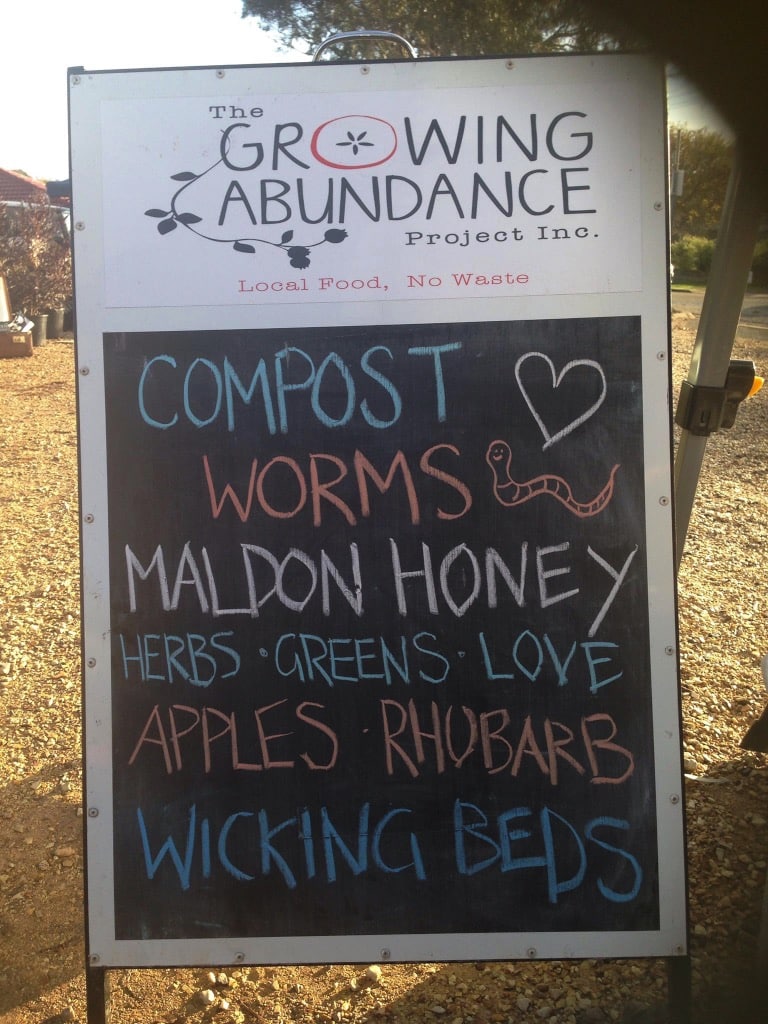 The
GROWING
ABUNDANCE
Project Inc.
Local Food, No Waste
COMPOST
WORMS
MALDON HONEY
HERBS · GREENS · LOVE
APPLES · RHUBARB
WICKING BEDS